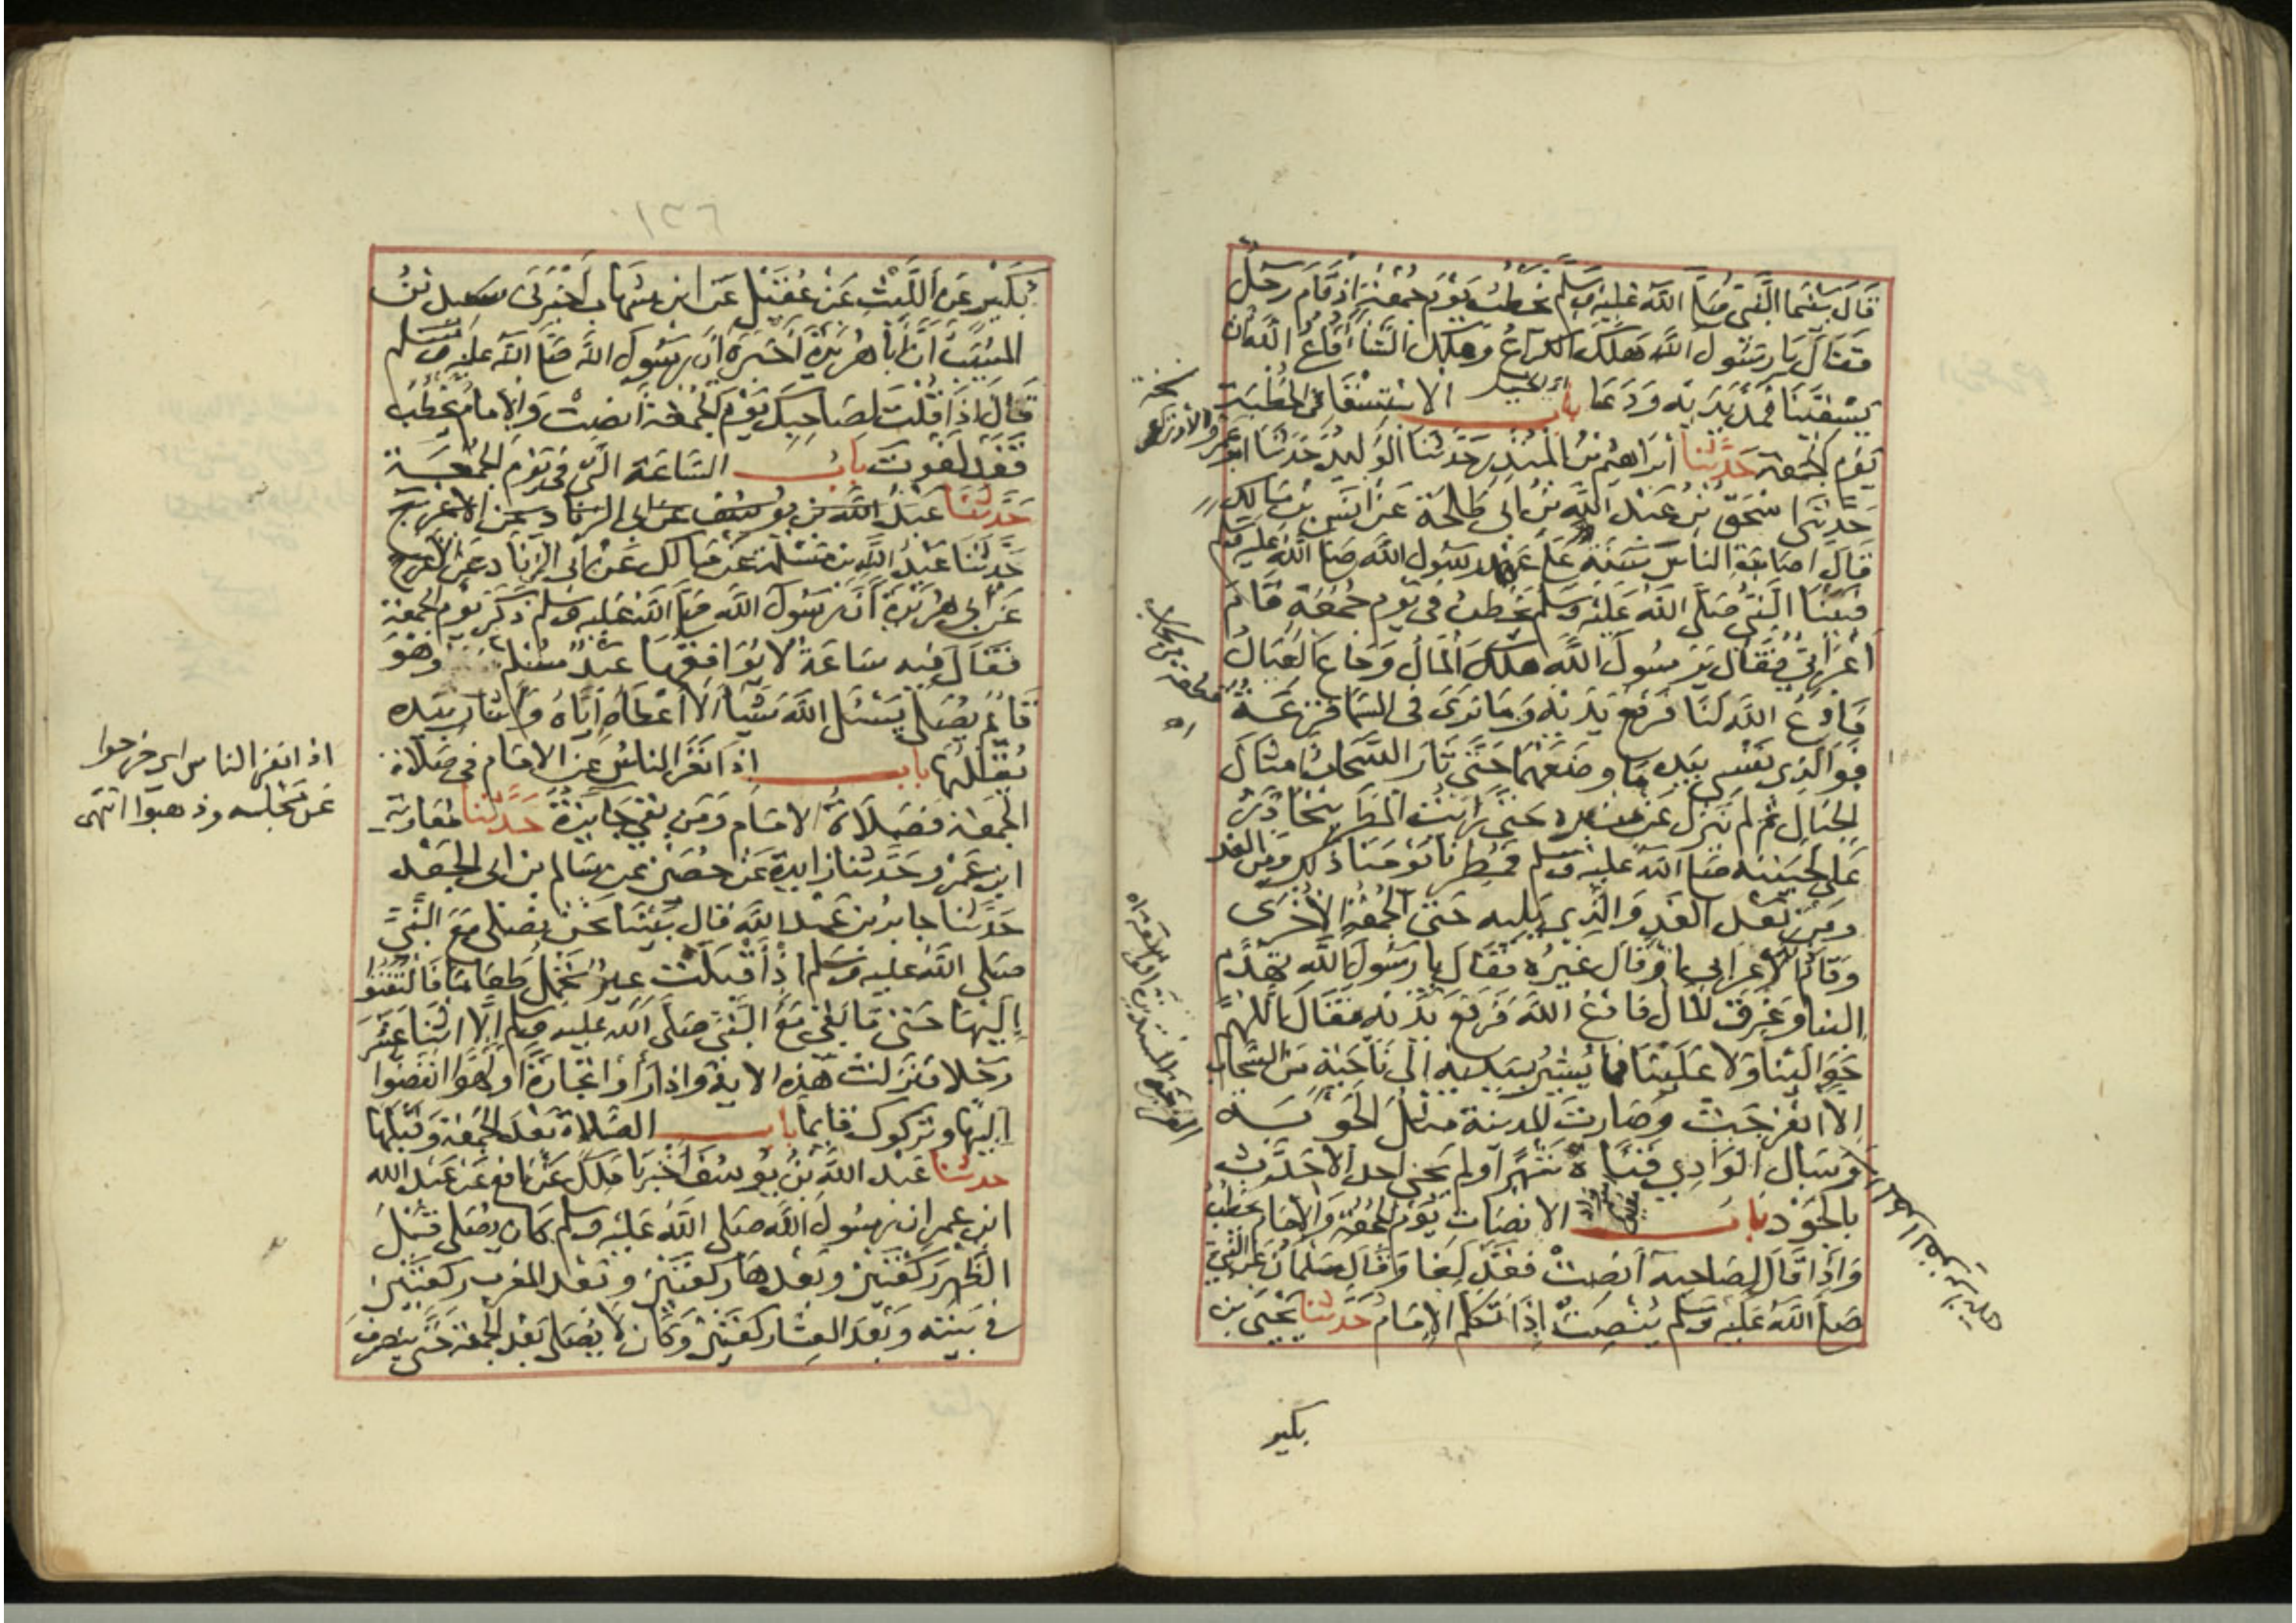 قال بينما النبي صلى الله عليه وسلم يخطب يوم جمعة إذ قام رجل
فقال يا رسول الله هلك الكراع وهلك الشاء فادع الله ان
يسقينا فمد يديه ودعا باب الاستسقا في الخطبة
يوم الجمعة حدثنا ابراهيم بن المنذر حدثنا الوليد حدثنا ابو عمرو الاوزاعي
حدثني اسحق بن عبد الله بن ابي طلحة عن انس بن مالك
قال اصابت الناس سنة على عهد رسول الله صلى الله عليه وسلم
فبينا النبي صلى الله عليه وسلم يخطب في يوم جمعة قام
أعرابي فقال يا رسول الله هلك المال وجاع العيال
فادع الله لنا فرفع يديه وما نرى في السما قزعة
فوالذي نفسي بيده ما وضعهما حتى ثار السحاب امثال
الجبال ثم لم ينزل عن منبره حتى رايت المطر يتحادر
على لحيته صلى الله عليه وسلم فمطرنا يومنا ذلك ومن الغد
ومن بعد الغد والذي يليه حتى الجمعة الأخرى
وقام الاعرابي او قال غيره فقال يا رسول الله تهدم
البنا وغرق المال فادع الله فرفع يديه فقال اللهم
حوالينا ولا علينا فما يشير بيديه الى ناحية من السحاب
الا انفرجت وصارت المدينة مثل الجوبة
وسال الوادي قناة شهرا ولم يجئ احد الا حدث
بالجود باب الانصات يوم الجمعة والامام يخطب
وإذا قال لصاحبه أنصت فقد لغا وقال سلمان عن النبي
صلى الله عليه وسلم ينصت إذا تكلم الامام حدثنا يحيى بن
بكير
١٣٦
بكير عن الليث عن عقيل عن ابن شهاب أخبرني سعيد بن
المسيب أن أبا هريرة أخبره أن رسول الله صلى الله عليه وسلم
قال إذا قلت لصاحبك يوم الجمعة أنصت والإمام يخطب
فقد لغوت باب الساعة التي في يوم الجمعة
حدثنا عبد الله بن يوسف عن ابي الزناد عن الاعرج
حدثنا عبد الله بن مسلمة عن مالك عن ابي الزناد عن الاعرج
عن ابي هريرة أن رسول الله صلى الله عليه وسلم ذكر يوم الجمعة
فقال فيه ساعة لا يوافقها عبد مسلم وهو
قائم يصلي يسئل الله شيئا الا أعطاه اياه وأشار بيده
يقللها باب اذا نفر الناس عن الامام في صلاة
الجمعة فصلاة الامام ومن بقي جايزة حدثنا معاوية
ابن عمرو حدثنا زايدة عن حصين عن سالم بن ابي الجعد
حدثنا جابر بن عبد الله قال بينما نحن نصلي مع النبي
صلى الله عليه وسلم اذ أقبلت عير تحمل طعاما فالتفتوا
إليها حتى ما بقي مع النبي صلى الله عليه وسلم إلا اثنا عشر
رجلا فنزلت هذه الاية واذا رأوا تجارة أو لهوا انفضوا
اليها وتركوك قايما باب الصلاة بعد الجمعة وقبلها
حدثنا عبد الله بن يوسف أخبرنا ملك عن نافع عن عبد الله
ابن عمر ان رسول الله صلى الله عليه وسلم كان يصلي قبل
الظهر ركعتين وبعدها ركعتين وبعد المغرب ركعتين
في بيته وبعد العشا ركعتين وكان لا يصلي بعد الجمعة حتى ينصرف
اذا نفر الناس اي خرجوا
عن مجلسه وذهبوا انتهى